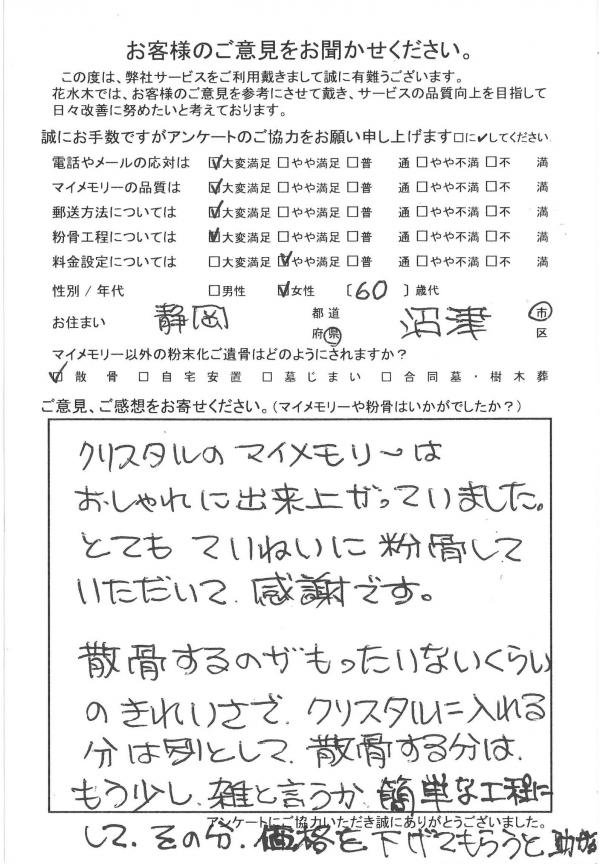 お客様のご意見をお聞かせください。
この度は、弊社サービスをご利用戴きまして誠に有難うございます。
花水木では、お客様のご意見を参考にさせて戴き、サービスの品質向上を目指して
日々改善に努めたいと考えております。
誠にお手数ですがアンケートのご協力をお願い申し上げます□に✓してください
電話やメールの応対は ☑大変満足 □やや満足 □普 通 □やや不満 □不 満
マイメモリーの品質は ☑大変満足 □やや満足 □普 通 □やや不満 □不 満
郵送方法については ☑大変満足 □やや満足 □普 通 □やや不満 □不 満
粉骨工程については ☑大変満足 □やや満足 □普 通 □やや不満 □不 満
料金設定については □大変満足 ☑やや満足 □普 通 □やや不満 □不 満
性別 / 年代 □男性 ☑女性 〔60〕歳代
お住まい 静岡 都道府県 沼津 市区
マイメモリー以外の粉末化ご遺骨はどのようにされますか?
☑散骨 □自宅安置 □墓じまい □合同墓・樹木葬
ご意見、ご感想をお寄せください。(マイメモリーや粉骨はいかがでしたか?)
クリスタルのマイメモリーは
おしゃれに出来上がっていました。
とても ていねいに 粉骨して
いただいて、感謝です。
散骨するのがもったいないくらい
のきれいさで、クリスタルに入れる
分は別として、散骨する分は、
もう少し、雑と言うか 簡単な工程に
アンケートにご協力いただき誠にありがとうございました。
して、その分、価格を下げてもらうと、助かる